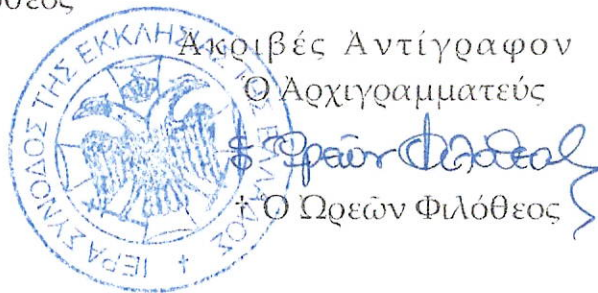 όθεος
Ἀκριβές Ἀντίγραφον
Ὁ Ἀρχιγραμματεύς
† Ὠρεῶν Φιλόθεος
† Ὁ Ὠρεῶν Φιλόθεος
ΙΕΡΑ ΣΥΝΟΔΟΣ ΤΗΣ ΕΚΚΛΗΣΙΑΣ ΤΗΣ ΕΛΛΑΔΟΣ †